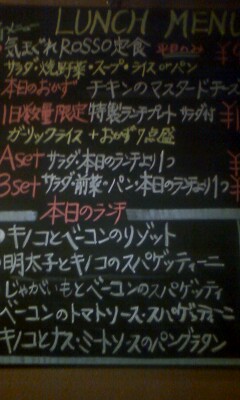 LUNCH MENU
気まぐれROSSO定食 ¥
サラダ・焼野菜・スープ・ライスorパン
本日のおかず チキンのマスタードチーズ
1日数量限定 特製ランチプレート サラダ付 ¥1
ガーリックライス+おかず7点盛
Aset サラダ・本日のランチより1つ ¥
Bset サラダ・前菜・パン・本日のランチより1つ ¥
本日のランチ
キノコとベーコンのリゾット
明太子とキノコのスパゲッティーニ
じゃがいもとベーコンのスパゲッティ
ベーコンのトマトソース・スパゲッティーニ
キノコとナス・ミートソースのパングラタン